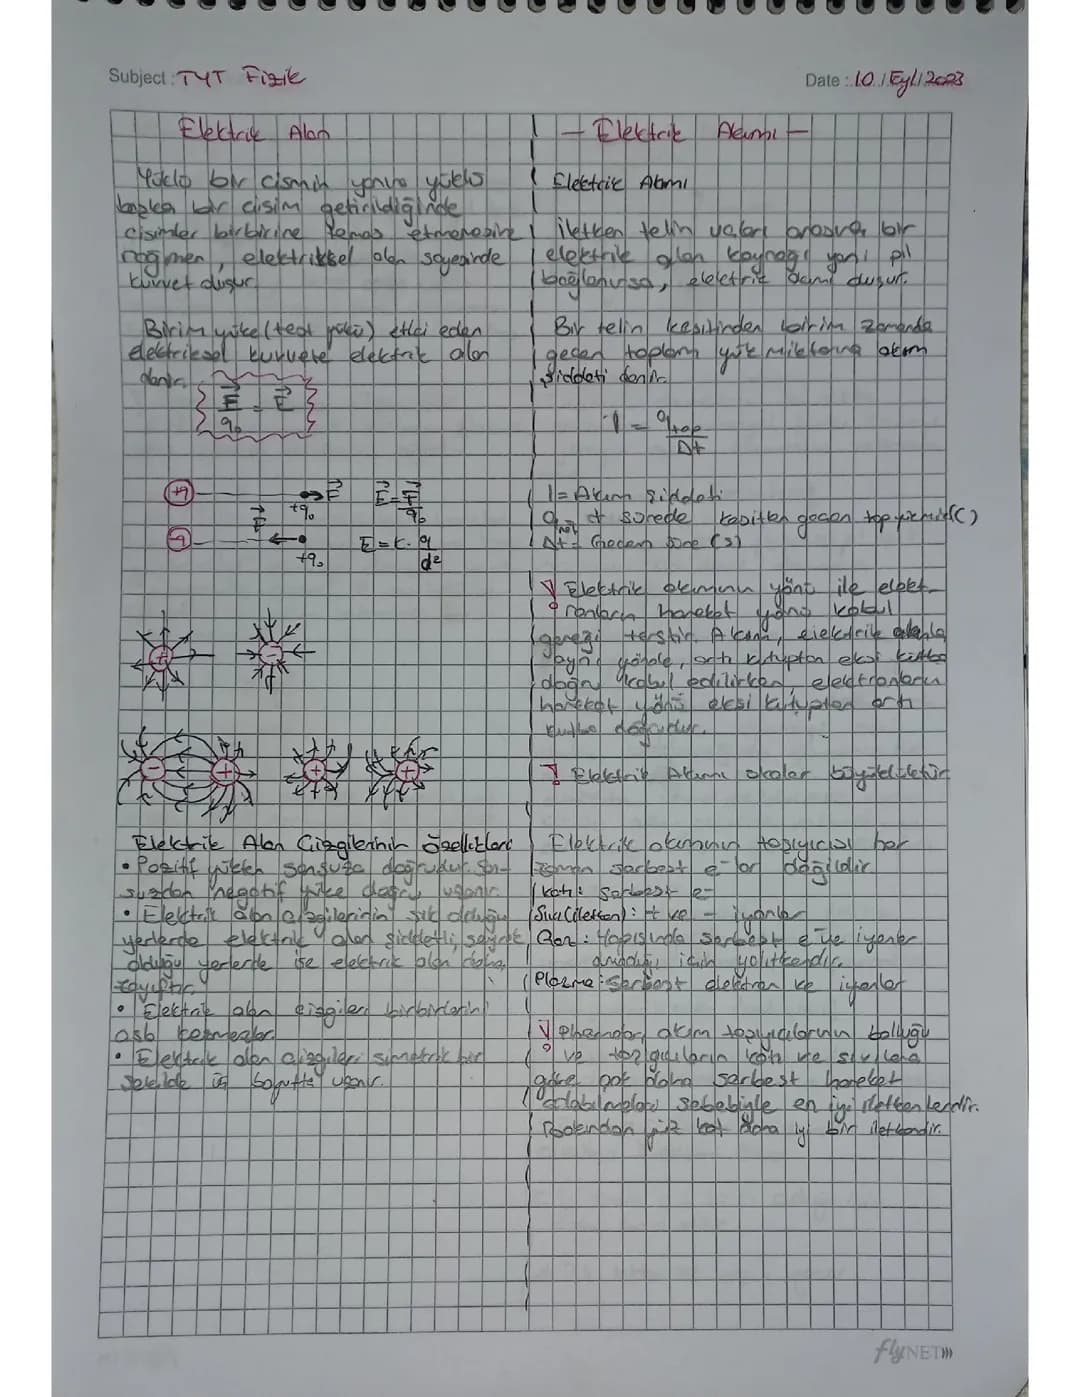 Subject : TYT Fizik
Date : 10 / Eyl / 2023
Elektrik Alan
Yüklü bir cismin yanına yüklü
başka bir cisim getirildiğinde
cisimler birbirine temas etmemesine
rağmen, elektriksel alan sayesinde
kuvvet oluşur.
Birim yüke (test yükü) etki eden
elektriksel kuvvete elektrik alan
denir.
F/q₀ = E
+q
+q₀
E
E = F/q₀
-q
E
+q₀
E = k. q/d²
+
-
-
+
+
+
Elektrik Alan Çizgilerinin Özellikleri
• Pozitif yükten sonsuza doğrudur. Son-
suzdan negatif yüke doğru uzanır.
• Elektrik alan çizgilerinin sık olduğu
yerlerde elektrik alan şiddetli, seyrek
olduğu yerlerde ise elektrik alan daha
zayıftır.
• Elektrik alan çizgileri birbirlerini
asla kesmezler.
• Elektrik alan çizgileri simetrik bir
şekilde üç boyutta uzanır.
- Elektrik Akımı -
Elektrik Akımı
İletken telin uçları arasına bir
elektrik alan kaynağı yani pil
bağlanırsa, elektrik akımı oluşur.
Bir telin kesitinden birim zamanda
geçen toplam yük miktarına akım
şiddeti denir.
I = qtop/Δt
I = Akım şiddeti
t sürede kesitten geçen top yük (C)
Δt = Geçen süre (s)
! Elektrik akımının yönü ile elekt-
ronların hareket yönü kabul
gereği terstir. Akım, elektrik alanla
aynı yönde, artı kutuptan eksi kutba
doğru kabul edilirken, elektronların
hareket yönü eksi kutuptan artı
kutba doğrudur.
! Elektrik Akımı skaler büyüklüktür
Elektrik akımının taşıyıcısı her
zaman serbest e- lar değildir
Katı: serbest e-
Sıvı (iletken) : + ve - iyonlar
Gaz : Yapısında serbest e ve iyonlar
olmadığı için yalıtkandır.
Plazma : serbest elektron ve iyonlar
! Plazmalar, akım taşıyıcılarının bolluğu
ve taşıyıcıların katı ve sıvılara
göre çok daha serbest hareket
edebilmeleri sebebiyle en iyi iletkenlerdir.
Bakırdan yüz kat daha iyi bir iletkendir.
flyNET